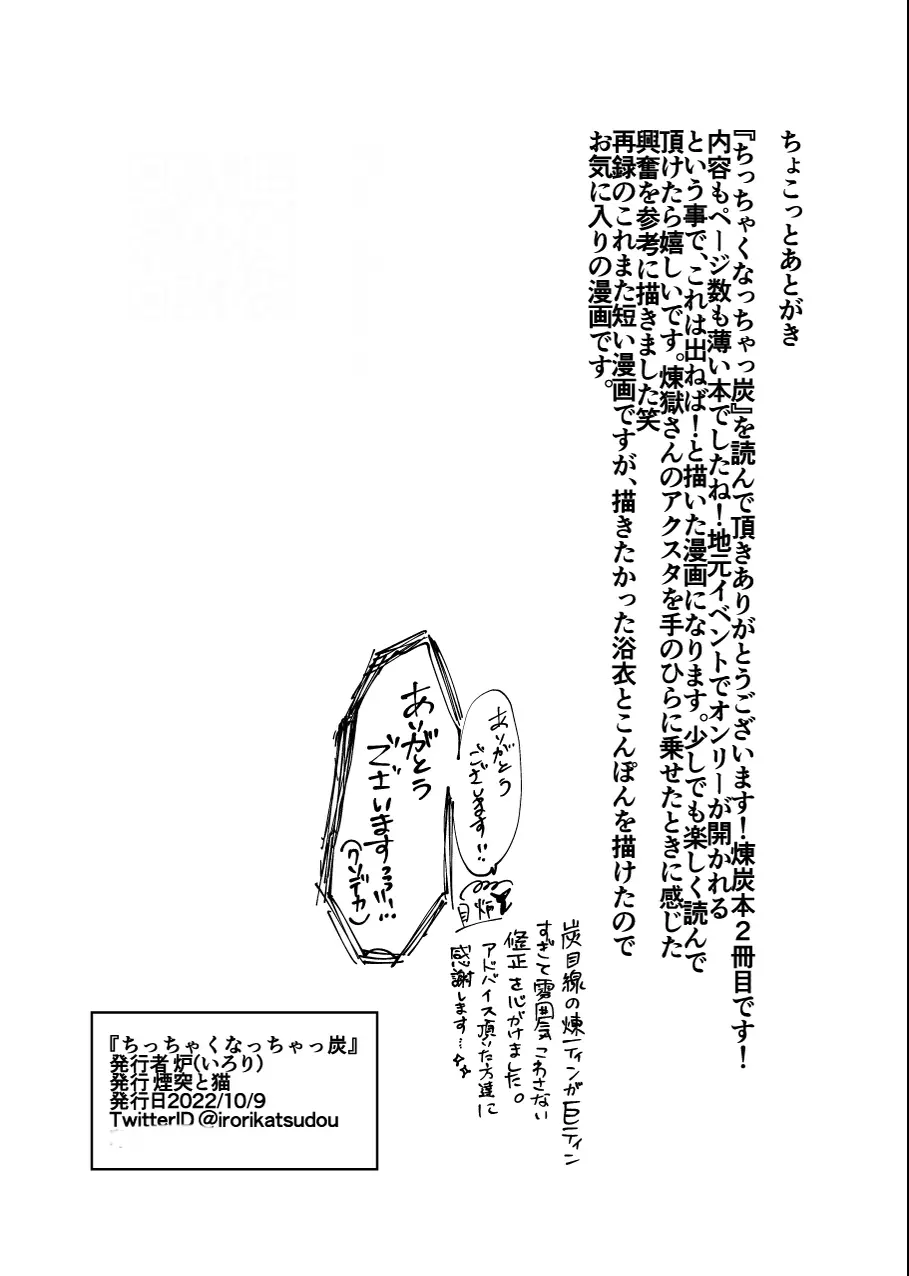 ちょこっとあとがき
『ちっちゃくなっちゃっ炭』を読んで頂きありがとうございます！煉炭本２冊目です！
内容もページ数も薄い本でしたね！地元イベントでオンリーが開かれる
という事で、これは出ねば！と描いた漫画になります。少しでも楽しく読んで
頂けたら嬉しいです。煉獄さんのアクスタを手のひらに乗せたときに感じた
興奮を参考に描きました笑
再録のこれまた短い漫画ですが、描きたかった浴衣とこんぽんを描けたので
お気に入りの漫画です。
ありがとう
ございます!!
炉
ありがとう
ございますっっ!!…
(クソデカ)
炭目線の煉ティンが巨ティン
すぎて雰囲気こわさない
修正を心がけました。
アドバイス頂いた方達に
感謝します…
『ちっちゃくなっちゃっ炭』
発行者 炉(いろり)
発行 煙突と猫
発行日2022/10/9
TwitterID @irorikatsudou